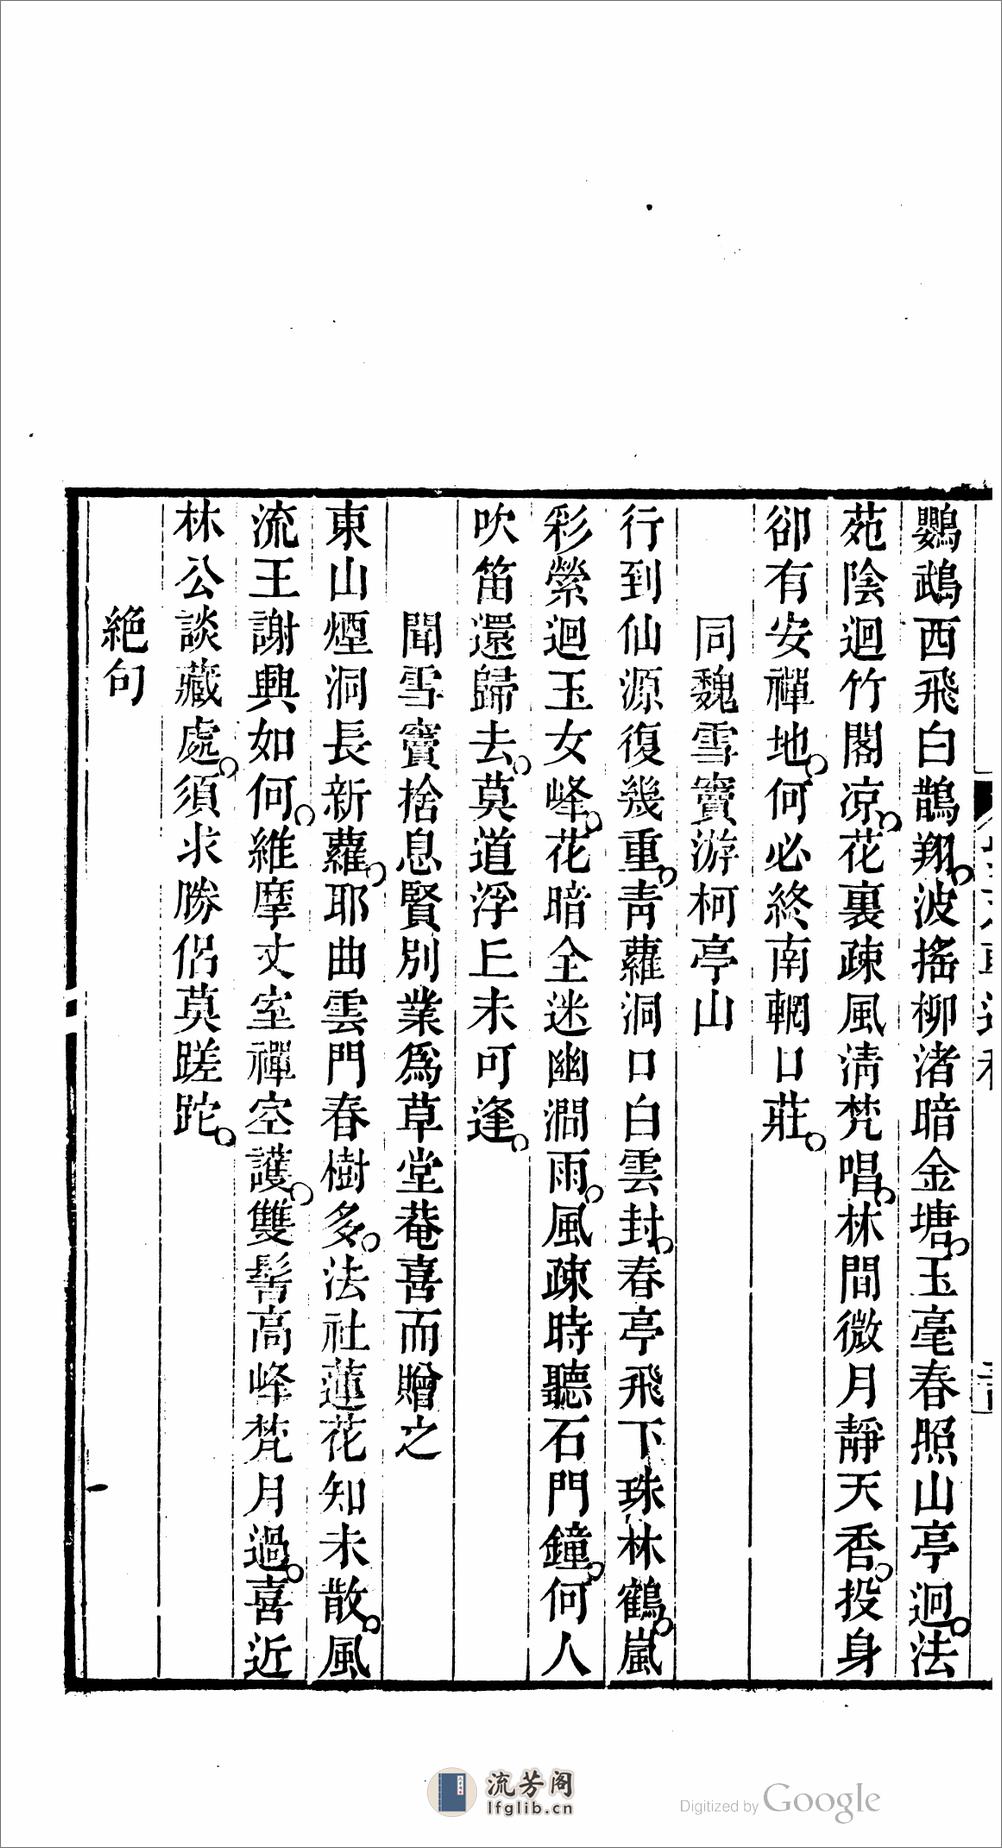 鸚鵡西飛白鵲翔波搖柳渚暗金塘玉毫春照山亭迥法
苑陰迴竹閣凉花裏疎風清梵唱林間微月靜天香投身
卻有安禪地何必終南輞口莊
同魏雪竇游柯亭山
行到仙源復幾重青蘿洞口白雲封春亭飛下珠林鶴嵐
彩縈迴玉女峰花暗全迷幽澗雨風疎時聽石門鐘何人
吹笛還歸去莫道浮丘未可逢
聞雪竇捨息賢別業爲草堂菴喜而贈之
東山煙洞長新蘿耶曲雲門春樹多法社蓮花知未散風
流王謝興如何維摩丈室禪空護雙髻高峰梵月過喜近
林公談藏處須求勝侶莫蹉跎
絕句
流芳阁
lfglib.cn
Digitized by Google